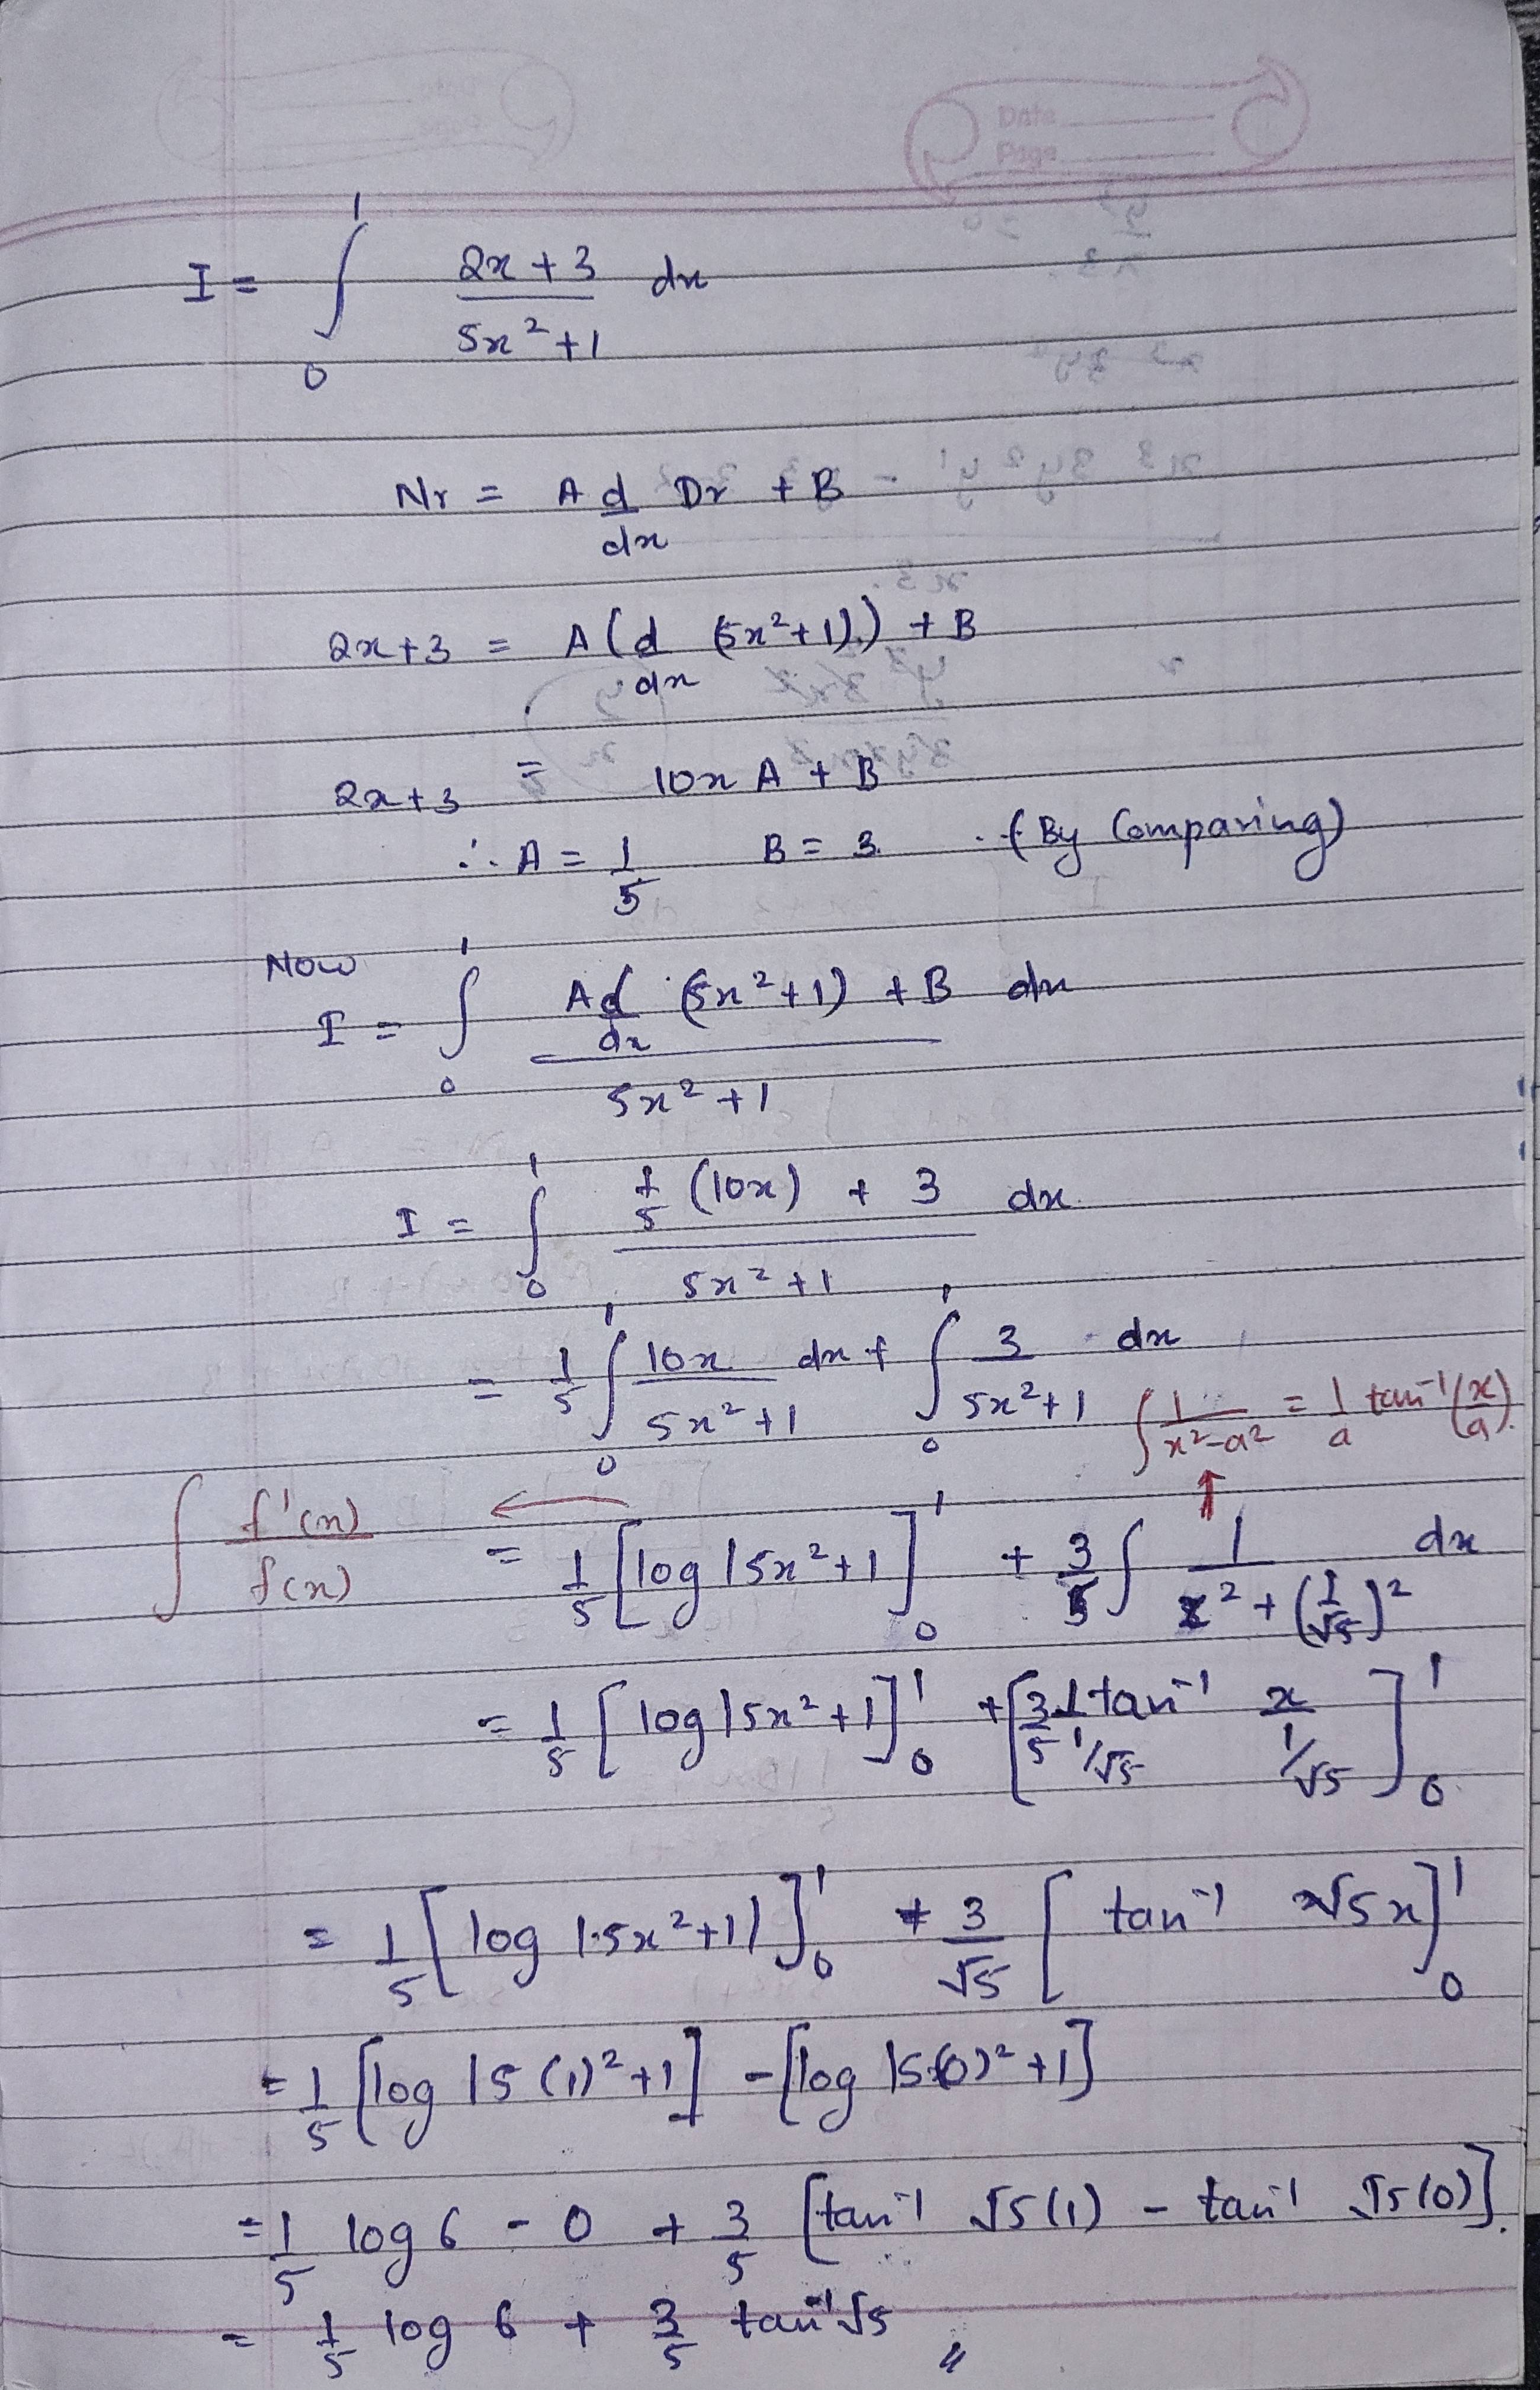 Date
Page
I = ∫₀¹ (2x + 3)/(5x² + 1) dx
Nr = A d/dx Dr + B
2x + 3 = A(d/dx (5x² + 1)) + B
2x + 3 = 10x A + B
∴ A = 1/5 B = 3 . . (By Comparing)
Now
I = ∫₀¹ (A d/dx (5x² + 1) + B)/(5x² + 1) dx
I = ∫₀¹ (1/5 (10x) + 3)/(5x² + 1) dx
= 1/5 ∫₀¹ 10x/(5x² + 1) dx + ∫₀¹ 3/(5x² + 1) dx
∫ 1/(x² - a²) = 1/a tan⁻¹(x/a)
∫ f'(x)/f(x) ←
↑
= 1/5 [log |5x² + 1]₀¹ + 3/5 ∫ 1/(x² + (1/√5)²) dx
= 1/5 [log |5x² + 1]₀¹ + [3/5 1/(1/√5) tan⁻¹ x/(1/√5)]₀¹
= 1/5 [log |5x² + 1|]₀¹ + 3/√5 [tan⁻¹ √5x]₀¹
= 1/5 [log |5(1)² + 1] - [log |5(0)² + 1]
= 1/5 log 6 - 0 + 3/5 [tan⁻¹ √5(1) - tan⁻¹ √5(0)].
= 1/5 log 6 + 3/5 tan⁻¹ √5 〃